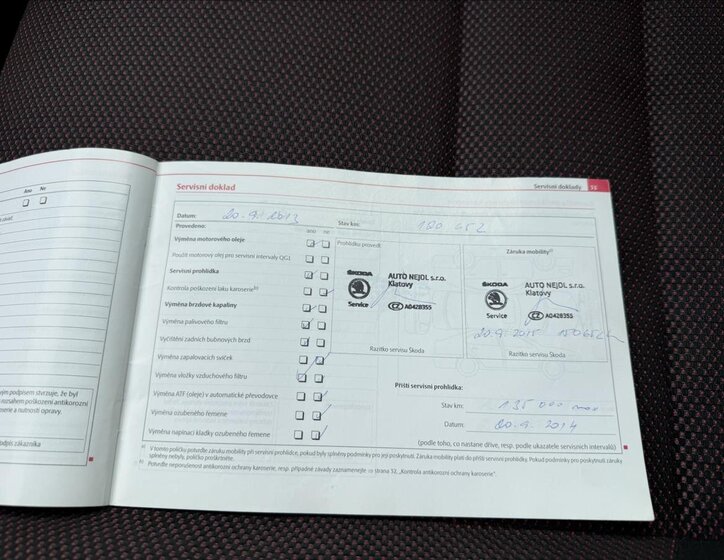 Ano Ne
Servisní doklad
Servisní doklady 55
Datum: 20. 9. 2013
Stav km:
Provedeno:
ano ne
Výměna motorového oleje
Použit motorový olej pro servisní intervaly QG1
Servisní prohlídka
Kontrola poškození laku karoserie b)
Výměna brzdové kapaliny
Výměna palivového filtru
Vyčištění zadních bubnových brzd
Výměna zapalovacích svíček
Výměna vložky vzduchového filtru
Výměna ATF (oleje) v automatické převodovce
Výměna ozubeného řemene
Výměna napínací kladky ozubeného řemene
Prohlídku provedl
ŠKODA
Service
AUTO NEJDL s.r.o.
Klatovy
CZ A0428355
Razítko servisu Škoda
Záruka mobility a)
ŠKODA
Service
AUTO NEJDL s.r.o.
Klatovy
CZ A0428355
Razítko servisu Škoda
Příští servisní prohlídka:
Stav km: 135 000 max
Datum: 20. 9. 2014
(podle toho, co nastane dříve, resp. podle ukazatele servisních intervalů)
a) V tomto políčku potvrďte záruku mobility při servisní prohlídce, pokud byly splněny podmínky pro její poskytnutí. Záruka mobility platí do příští servisní prohlídky. Pokud podmínky pro poskytnutí záruky
splněny nebyly, políčko proškrtněte.
b) Potvrďte neporušenost antikorozní ochrany karoserie, resp. případné závady zaznamenejte ⇒ strana 52, „Kontrola antikorozní ochrany karoserie".
podpisem stvrzuje, že byl
rozsahem poškození antikorozní
a nutností opravy.
podpis zákazníka